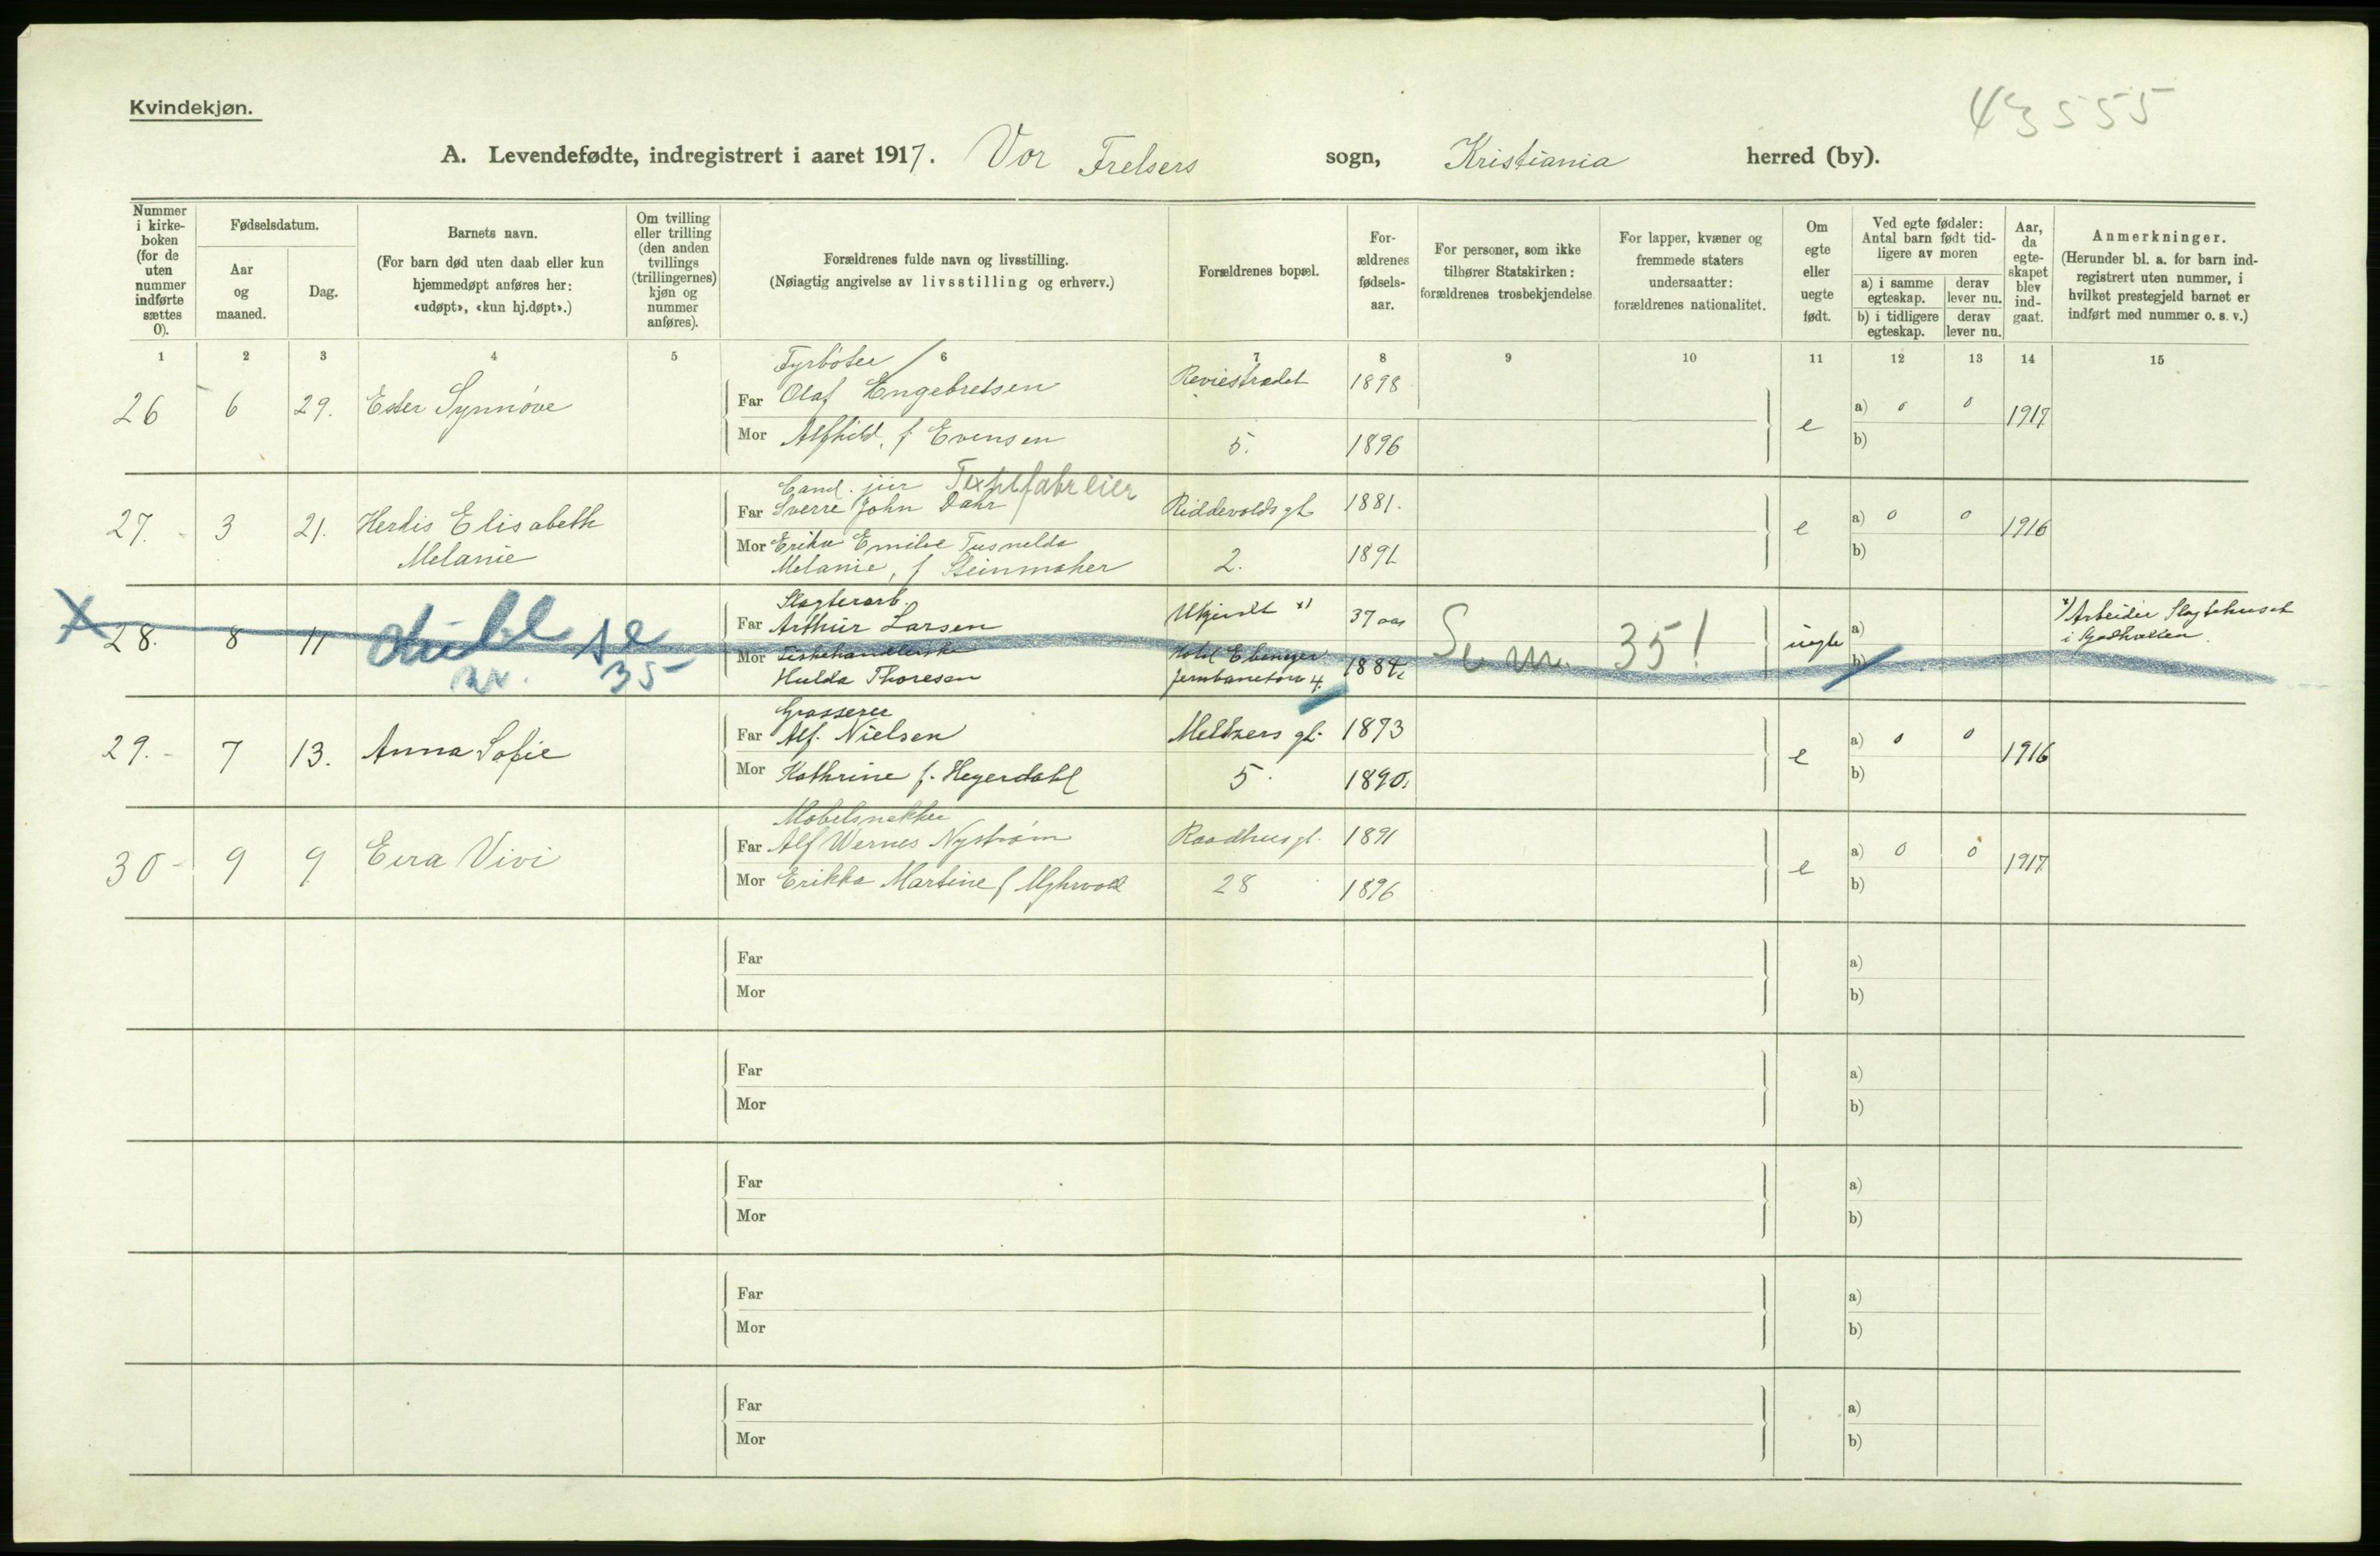 Kvindekjøn.
43555
A. Levendefødte, indregistrert i aaret 1917. Vor Frelsers sogn, Kristiania herred (by).
Nummer i kirke-boken (for de uten nummer indførte sættes 0).
Fødselsdatum.
Aar og maaned.
Dag.
Barnets navn.
(For barn død uten daab eller kun hjemmedøpt anføres her: «udøpt», «kun hj.døpt».)
Om tvilling eller trilling (den anden tvillings (trillingernes) kjøn og nummer anføres).
Forældrenes fulde navn og livsstilling.
(Nøiagtig angivelse av livsstilling og erhverv.)
Forældrenes bopæl.
For-ældrenes fødsels-aar.
For personer, som ikke tilhører Statskirken: forældrenes trosbekjendelse.
For lapper, kvæner og fremmede staters undersaatter: forældrenes nationalitet.
Om egte eller uegte født.
Ved egte fødsler: Antal barn født tid-ligere av moren
a) i samme egteskap.
derav lever nu.
b) i tidligere egteskap.
derav lever nu.
Aar, da egte-skapet blev ind-gaat.
Anmerkninger.
(Herunder bl. a. for barn ind-registrert uten nummer, i hvilket prestegjeld barnet er indført med nummer o. s. v.)
1 2 3 4 5 6 7 8 9 10 11 12 13 14 15
Fyrbøter
26 6 29. Ester Synnøve Far Olaf Engebretsen Reviestrædet 1898 e a) 0 0 1917
Mor Alfhild, f. Evensen 5. 1896 b)
Cand. jur Textilfabr eier
27. 3 21. Herdis Elisabeth Far Sverre John Dahr Riddevolds gt. 1881. e a) 0 0 1916
Melanie Mor Erika Emilie Tusnelda 1891 b)
Melanie, f Steinmaker 2.
Slagterarb.
28. 8 11 Far Arthur Larsen Ukjendt x) 37 aar Se nr. 35! uegte a) x) Arbeider Slagtehuset
35 Mor Fiskehandlerske Hotel Ebenezer 1884. b) i
Hulda Thoresen Jernbanetorv 4.
Grosserer
29. 7 13. Anna Sofie Far Alf. Nielsen Meltzers gt. 1873 e a) 0 0 1916
Mor Kathrine f. Heyerdahl 5. 1890. b)
Møbelsnekker
30 9 9 Eira Vivi Far Alf Wernes Nystrøm Raadhusgt. 1891 e a) 0 0 1917
Mor Erikka Martine f 28 1896 b)
Far a)
Mor b)
Far a)
Mor b)
Far a)
Mor b)
Far a)
Mor b)
Far a)
Mor b)